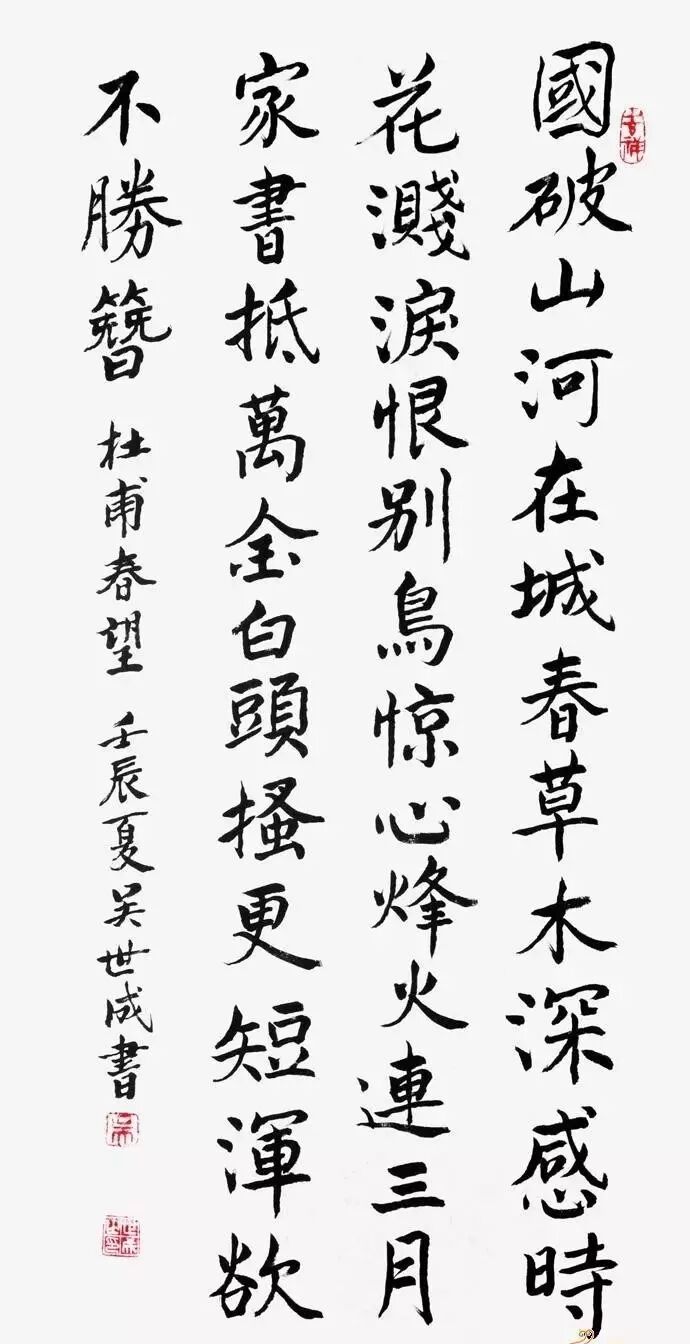 國破山河在城春草木深感時
花濺淚恨别鳥惊心烽火連三月
家書抵萬金白頭搔更短渾欲
不勝簪 杜甫春望 壬辰夏吴世成書
吉祥